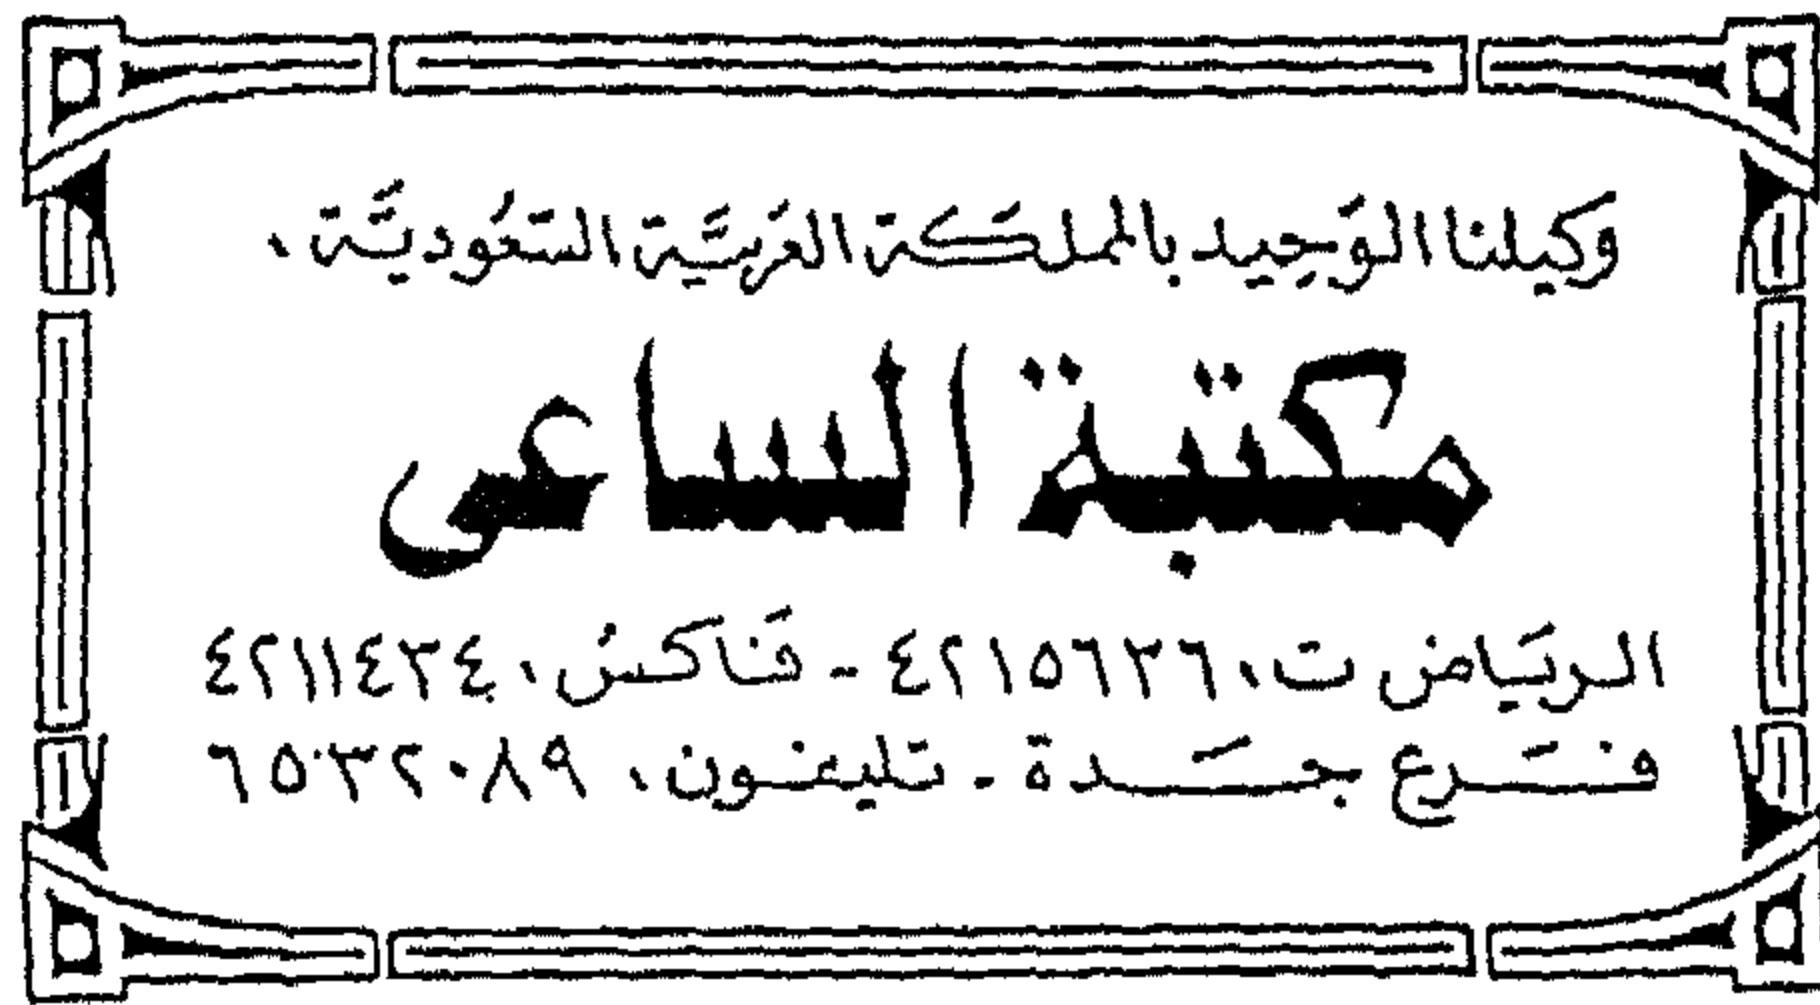 وَكيلنا الوَحِيد بالمملكَة العَربيَّة السَّعُوديَّة،
مكتبة الساعى
الريَاض ت، ٤٢١٥٦٣٦ - فَاكسُ، ٤٢١١٤٣٤
فَرع جَدة - تليفون، ٦٥٣٢٠٨٩